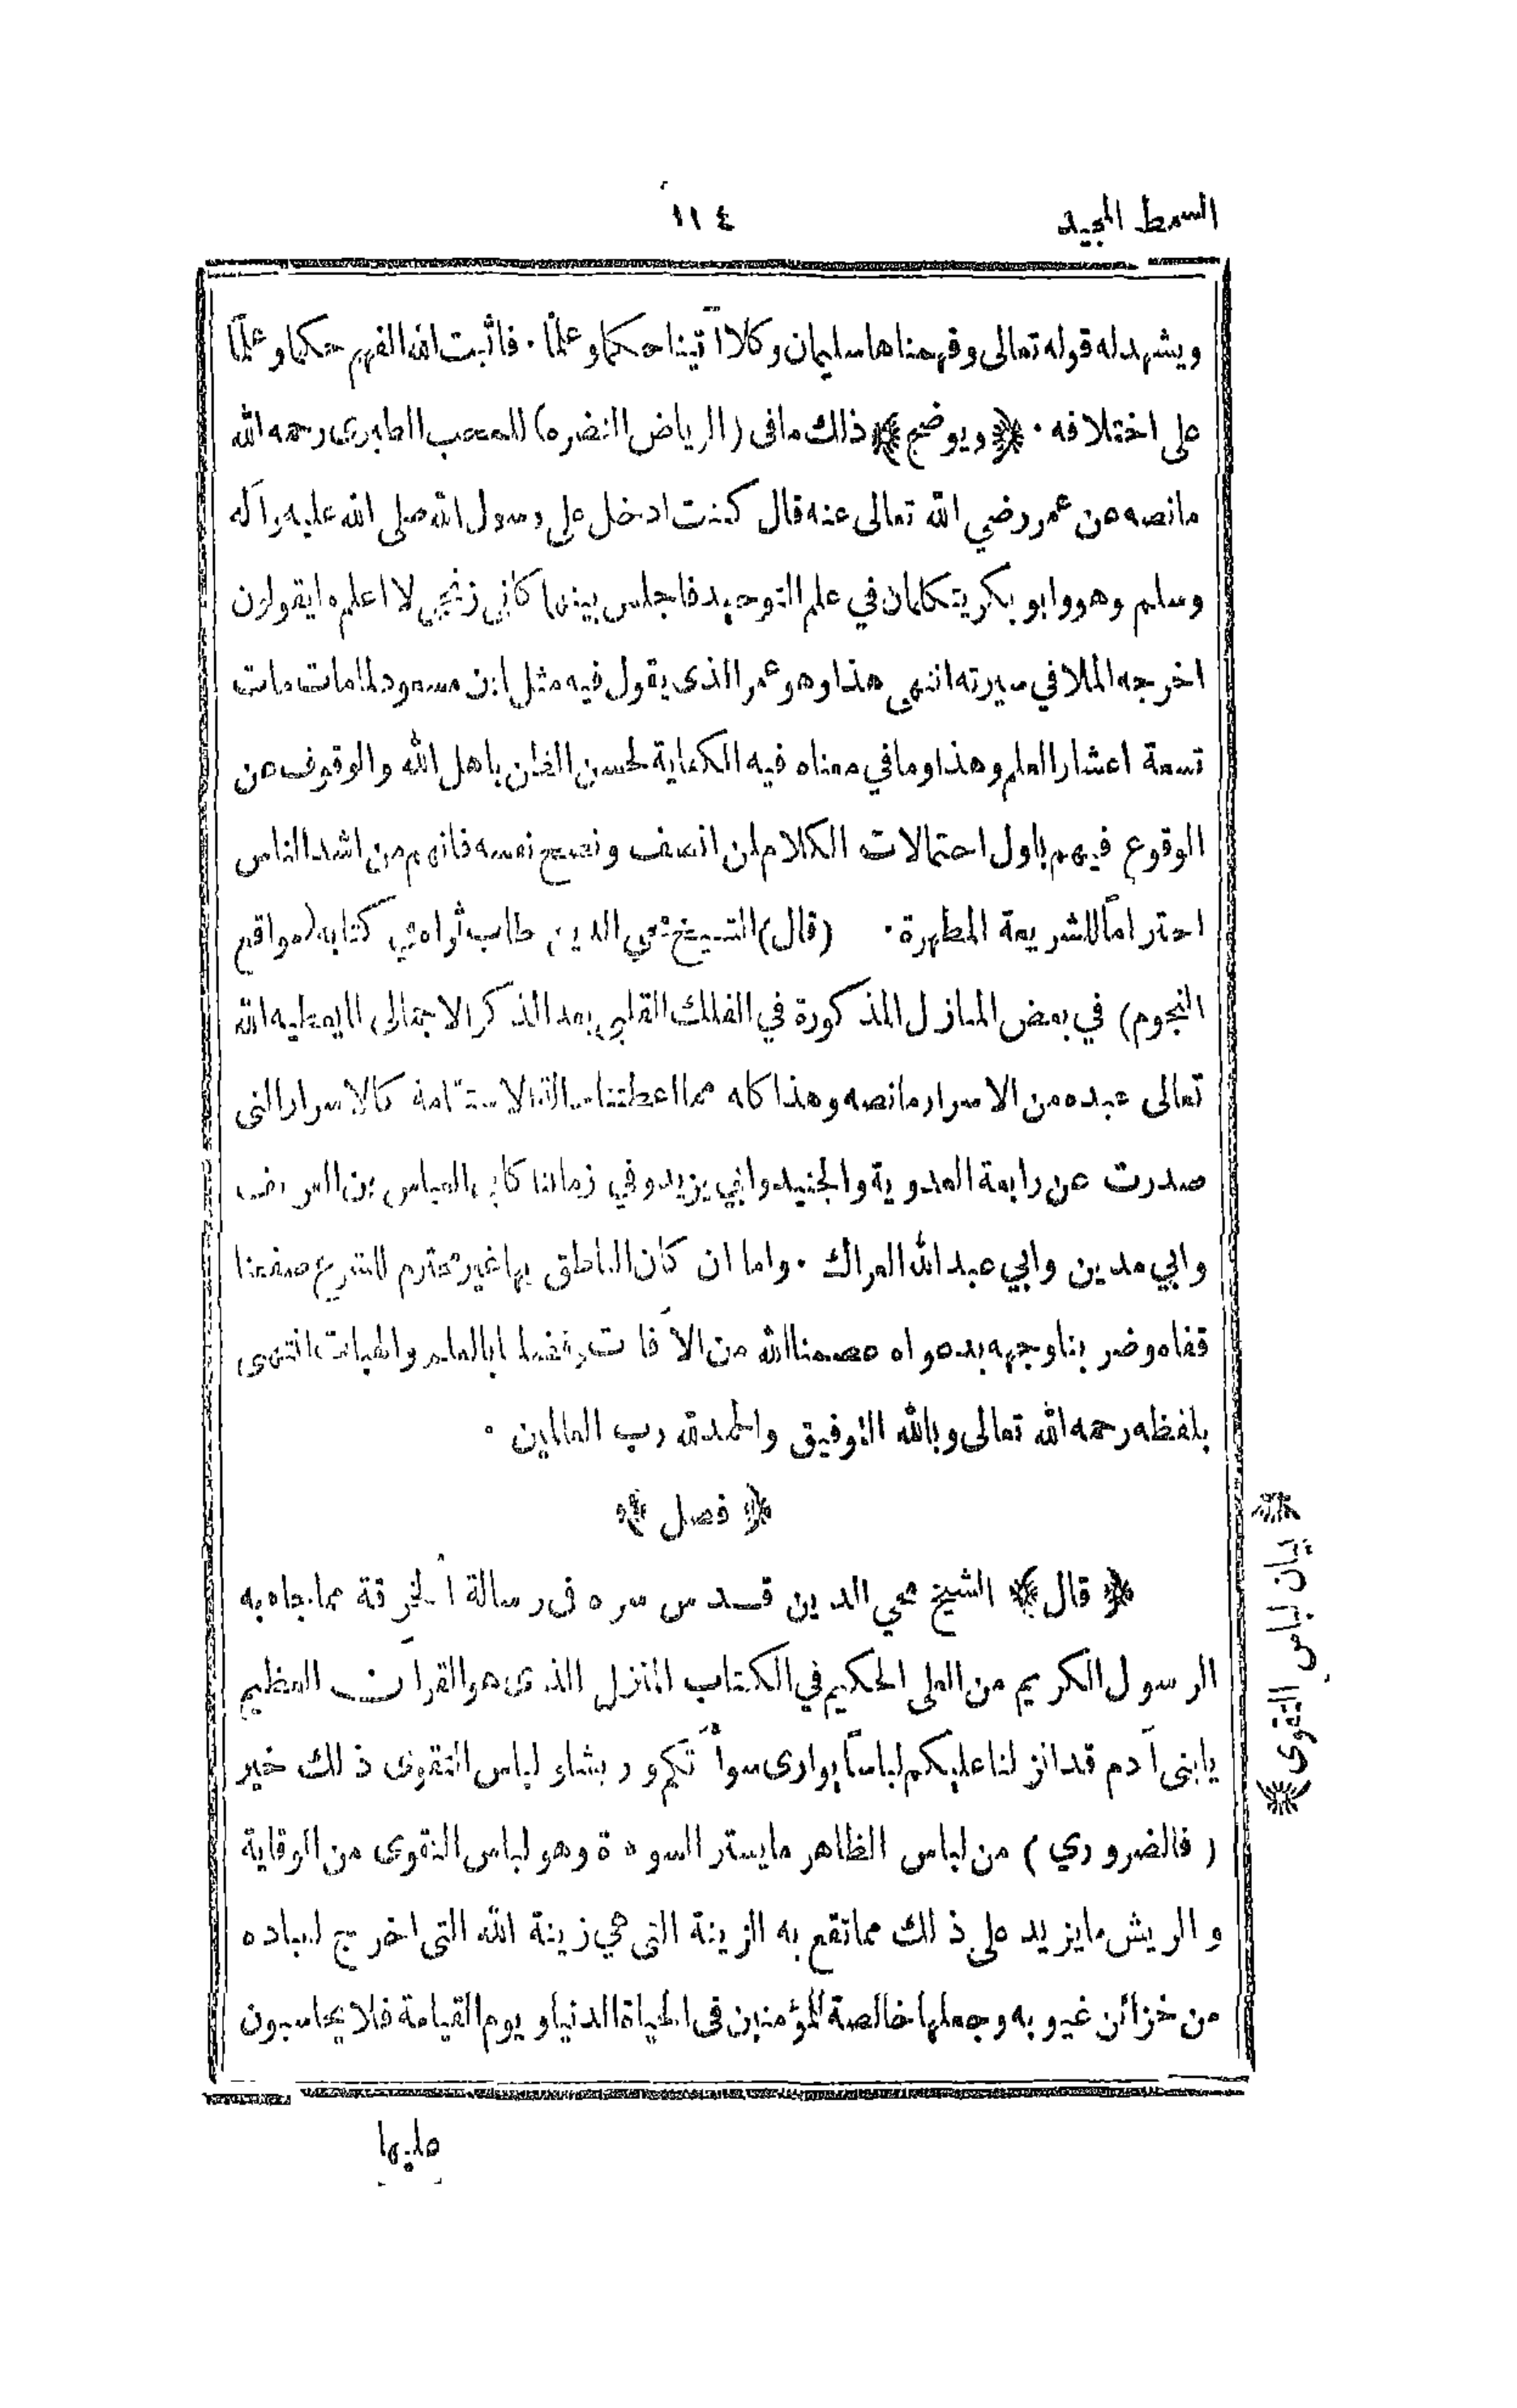 السمط المجيد
١١٤
ويشهد له قوله تعالى وفهمناها سليمان وكلا آتينا حكما وعلمًا . فاثبت الله الفهم حكما وعلمًا
على اختلافه . ﴿ ويوضح ﴾ ذلك ما في ( الرياض النضره ) للمحب الطبرى رحمه الله
ما نصه عن عمر رضي الله تعالى عنه قال كنت ادخل على رسول الله صلى الله عليه وآله
وسلم وهو وابو بكر يتكلمان في علم التوحيد فاجلس بينهما كاني زنجي لا اعلم ما يقولون
اخرجه الملا في سيرته انتهى هذا وهو عمر الذى يقول فيه مثل ابن مسعود لما مات مات
تسعة اعشار العلم وهذا وما في معناه فيه الكفاية لحسن الظن باهل الله والوقوف عن
الوقوع فيهم باول احتمالات الكلام لمن انصف ونصح نفسه فانهم من اشد الناس
احتراماً للشريعة المطهرة . ( قال ) الشيخ محي الدين طاب ثراه في كتابه ( مواقع
النجوم ) في بعض المنازل المذكورة في الفلك القلبي بعد الذكر الاجمالى لما يعطيه الله
تعالى عبده من الاسرار ما نصه وهذا كله مما اعطتنا الاستقامة كالاسرار التى
صدرت عن رابعة العدوية والجنيد وابي يزيد وفي زماننا كابي العباس بن العريف
وابي مدين وابي عبد الله الغزال . واما ان كان الناطق بها غير محترم للشرع صفعنا
قفاه وضربنا وجهه بدعواه عصمنا الله من الآفات وفضلنا بالعلم والهبات انتهى
بلفظه رحمه الله تعالى وبالله التوفيق والحمد لله رب العالمين .
﴿ فصل ﴾
﴿ قال ﴾ الشيخ محي الدين قدس سره فى رسالة الخرقة مما جاء به
الرسول الكريم من العلى الحكيم في الكتاب المنزل الذى هو القرآن العظيم
يا بنى آدم قد انزلنا عليكم لباسًا يوارى سوآتكم وريشا ولباس التقوى ذلك خير
( فالضروري ) من لباس الظاهر ما يستر السوءة وهو لباس التقوى من الوقاية
والريش ما يزيد على ذلك مما تقع به الزينة التى هي زينة الله التى اخرج لعباده
من خزائن غيوبه وجعلها خالصة للمؤمنين فى الحياة الدنيا ويوم القيامة فلا يحاسبون
﴿ بيان لباس التقوى ﴾
عليها